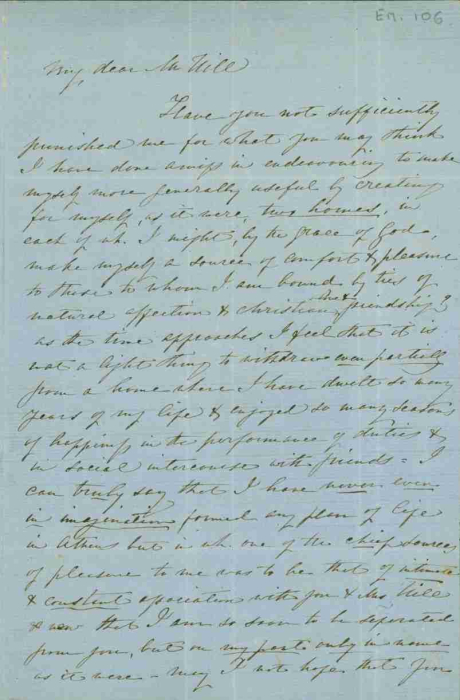 En. 106
My dear Mr Hill
Have you not sufficiently
punished me for what you may think
I have done amiss in endeavouring to make
myself more generally useful by creating
for myself, as it were, two homes, in
each of wh. I might, by the grace of God,
make myself a source of comfort & pleasure
to those to whom I am bound by ties of
natural affection & Christian friendship?
as the time approaches I feel that it is
not a light thing to withdraw even partially
from a home where I have dwelt so many
years of my life & enjoyed so many seasons
of happiness in the performance of duties &
in social intercourse with friends - I
can truly say that I have never even
in imagination formed any plan of life
in Athens but in wh. one of the chief sources
of pleasure to me was to be that of intimate
& constant association with you & Mrs Hill
& now that I am so soon to be separated
from you, but on my part only in name
as it were - may I not hope that you